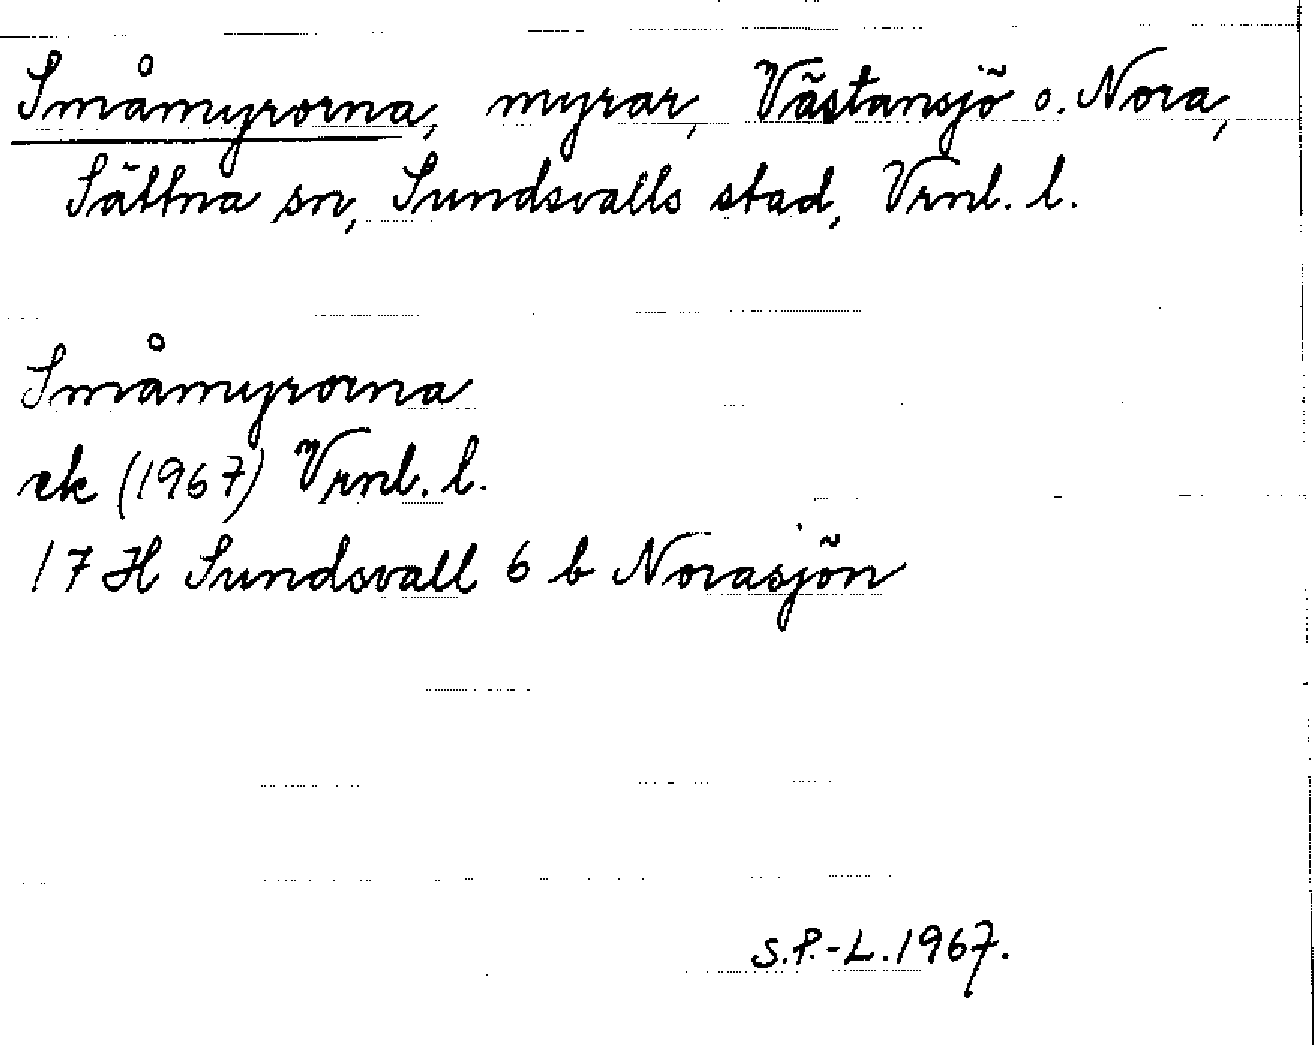 Småmyrorna, myrar, Västansjö o. Nora,
Sättna sn, Sundsvalls stad, Vrnl. l.
Småmyrorna
ek (1967) Vrnl. l.
17 H Sundsvall 6 b Norasjön
S.P.-L. 1967.